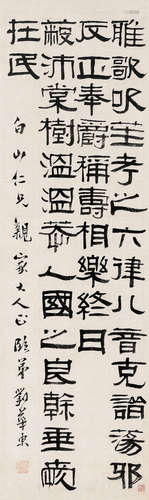 雅歌吹笙考之六律八音克諧蕩邪
反正奉爵稱壽相樂終日
蔽沛棠樹溫溫恭人國之良幹垂愛
在民
白山仁兄親家大人正 弟劉華東